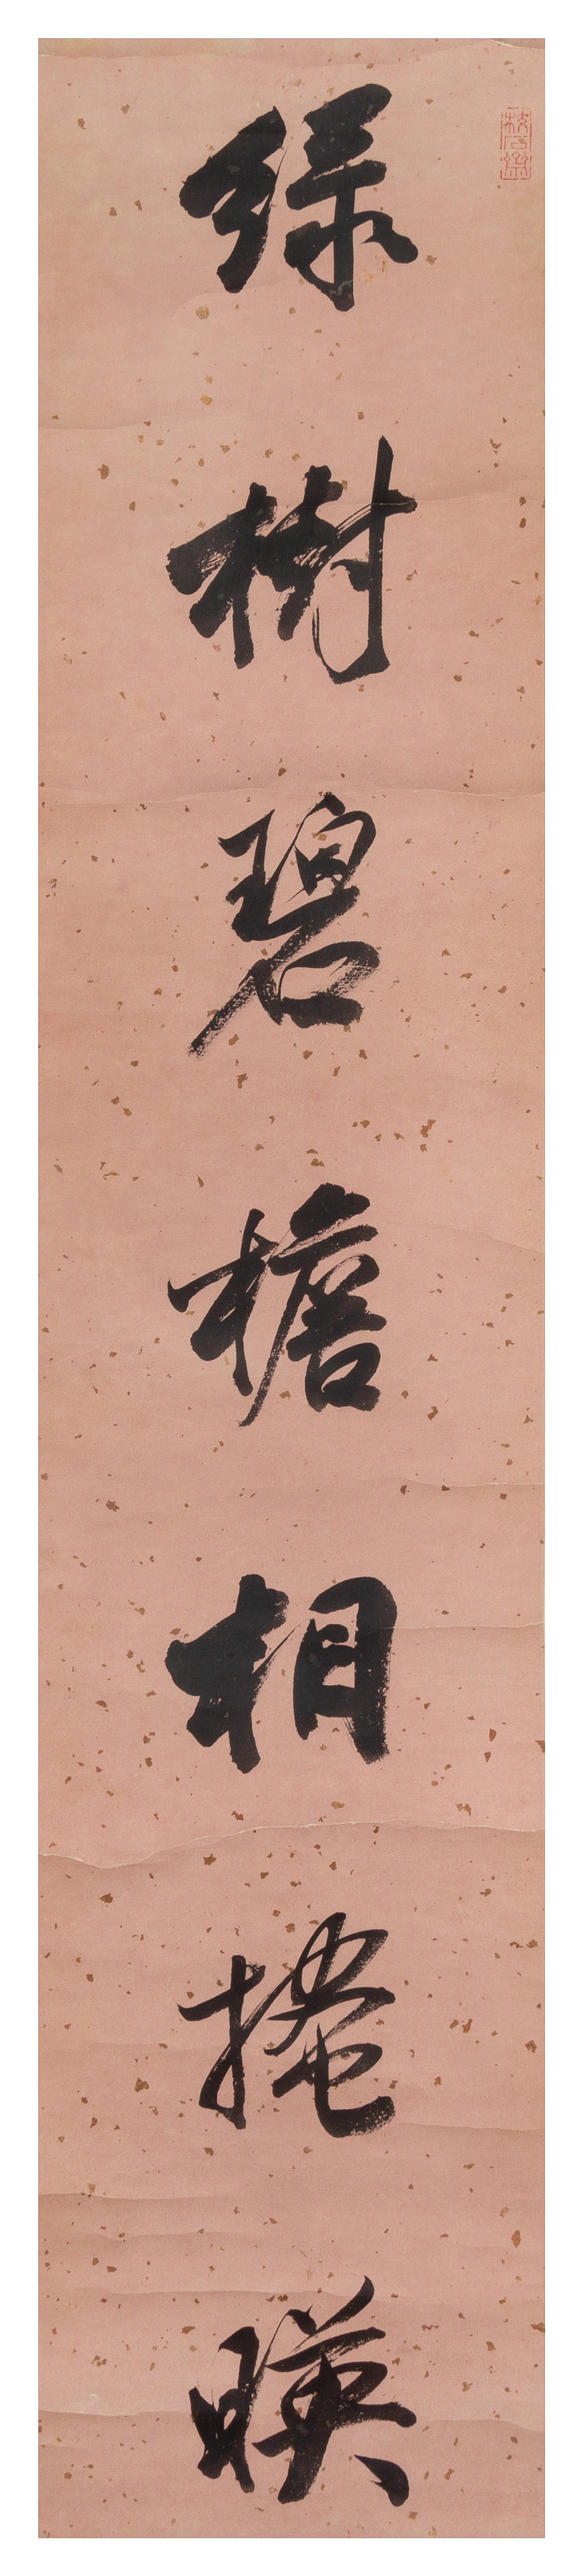 綠樹碧檐相掩暎